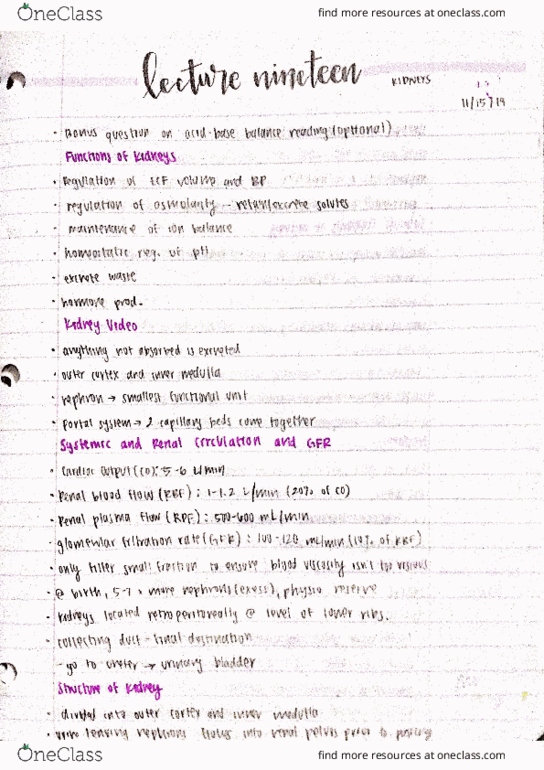 OneClass
find more resources at oneclass.com
lecture nineteen
KIDNEYS
11/15/19
• Bonus question on acid-base balance reading (optional)
Functions of Kidneys
• Regulation of ECF volume and BP
• regulation of osmolarity - retain/excrete solutes
• maintenance of ion balance
• homeostatic reg. of pH
• excrete waste
• hormone prod.
Kidney Video
• anything not absorbed is excreted
• outer cortex and inner medulla
• nephron → smallest functional unit
• Portal system → 2 capillary beds come together
Systemic and Renal Circulation and GFR
• Cardiac Output (CO): 5-6 L/min
• Renal blood flow (RBF): 1-1.2 L/min (20% of CO)
• Renal plasma flow (RPF): 500-600 mL/min
• glomerular filtration rate (GFR): 100-120 mL/min (10% of RBF)
• only filter small fraction to ensure blood viscosity isn't too viscous
• @ birth, 5-7 x more nephrons (excess), physio reserve
• kidneys located retroperitoneally @ level of lower ribs.
• collecting duct - final destination
- go to ureter → urinary bladder
Structure of Kidney
• divided into outer cortex and inner medulla
• urine leaving nephrons flows into renal pelvis prior to passing
OneClass
find more resources at oneclass.com